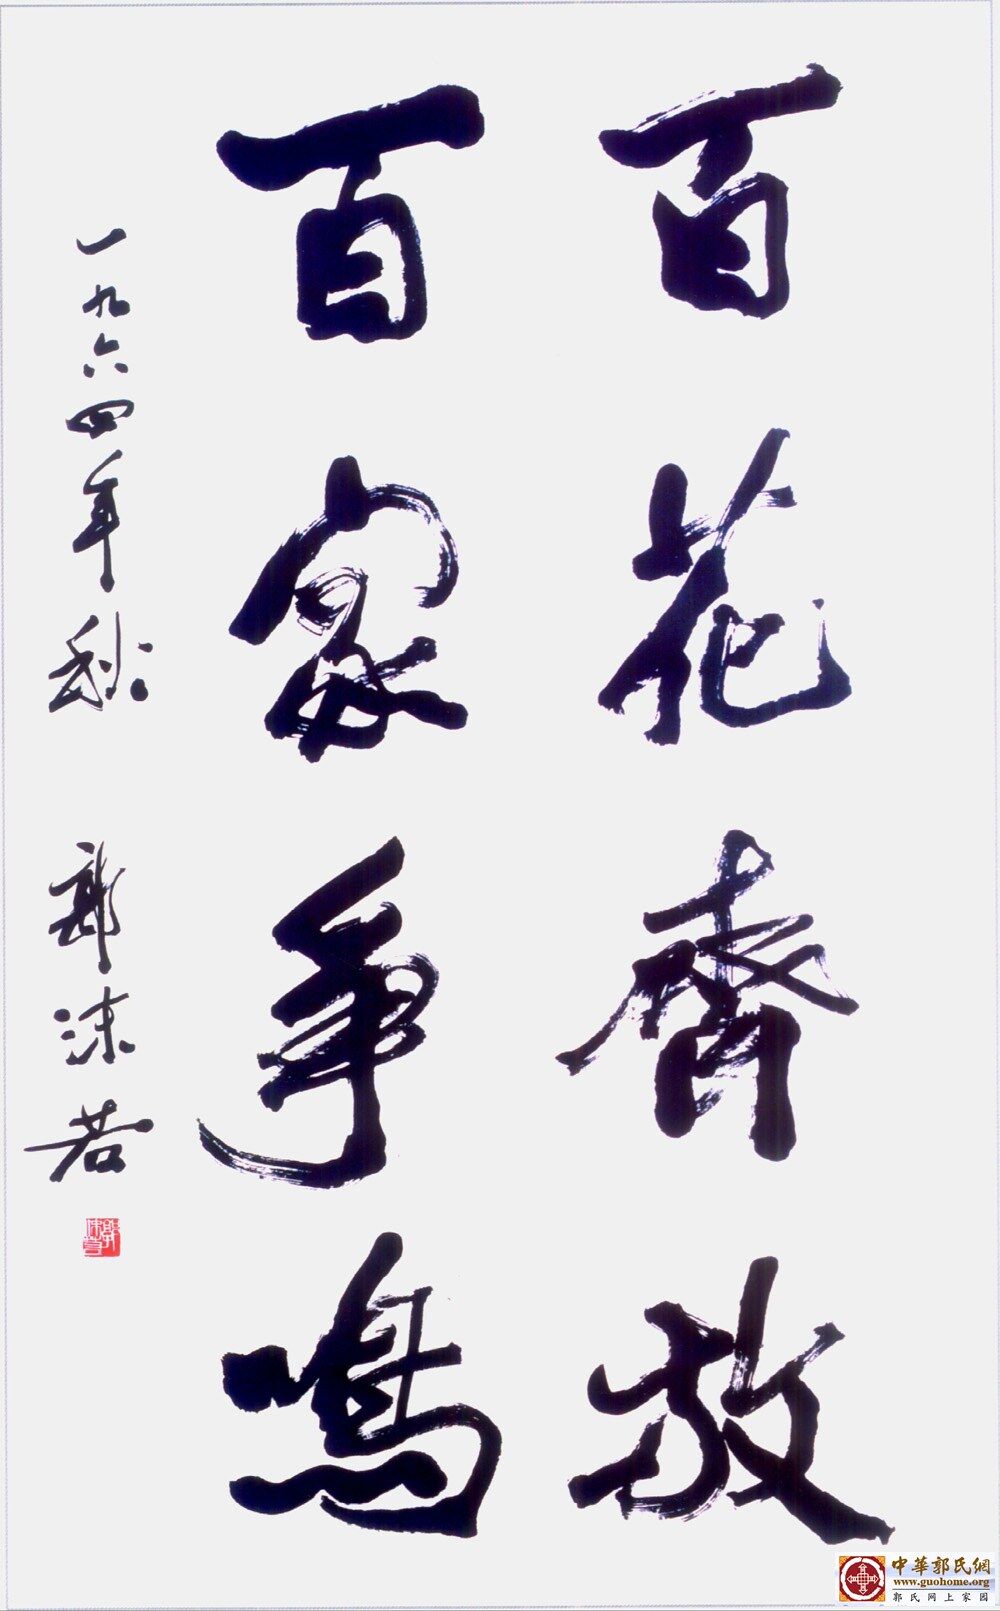 百花齊放
百家爭鳴
一九六四年秋 郭沫若
郭沫若
中華郭氏網
www.guohome.org
郭氏网上家园